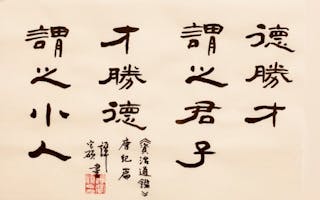 德勝才
謂之君子
才勝德
謂之小人
《資治通鑑》
紀篇
書